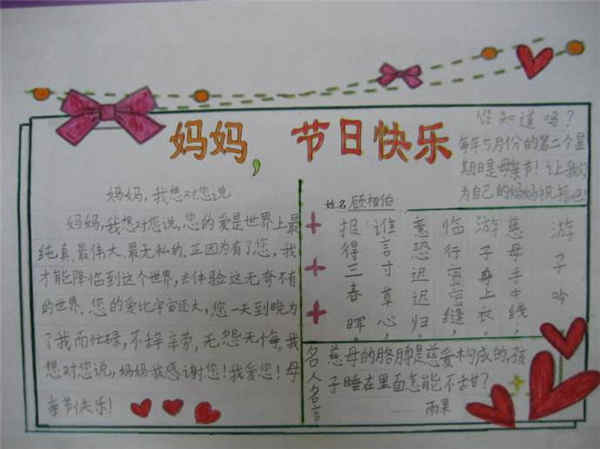 妈妈，节日快乐
您知道吗？
每年5月份的第二个星
期日是母亲节！让我们
为自己的妈妈祝
妈妈，我想对您说
妈妈，我想对您说，您的爱是世界上最
纯真、最伟大、最无私的。正因为有了您，我
才能降临到这个世界，去体验这无奇不有
的世界。您的爱比宇宙还大，您一天到晚为
了我而忙碌，不辞辛劳，无怨无悔。我
想对您说，妈妈我感谢您！我爱您！母
亲节快乐！
姓名
游子吟
慈母手中线，
游子身上衣。
临行密密缝，
意恐迟迟归。
谁言寸草心，
报得三春晖。
名人名言
慈母的胳膊是慈爱构成的，孩
子睡在里面怎能不甜？
——雨果